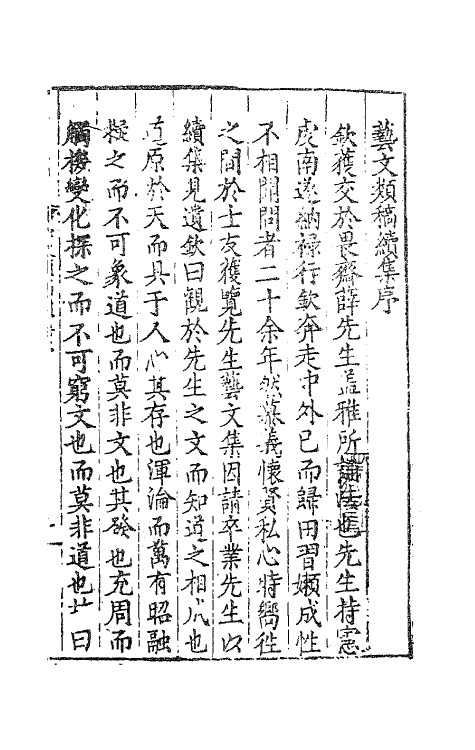 藝文類稿續集序
欽獲交於畏齋薛先生盖雅所講法也先生持憲
虔南遂納祿行欽奔走中外已而歸田習嬾成性
不相聞問者二十余年然慕義懷賢私心時嚮徃
之間於士友獲覽先生藝文集因請卒業先生以
續集見遺欽曰觀於先生之文而知道之相爪也
道原於天而具于人心其存也渾淪而萬有昭融
擬之而不可象道也而莫非文也其發也充周而
觸機變化探之而不可窮文也而莫非道也世曰